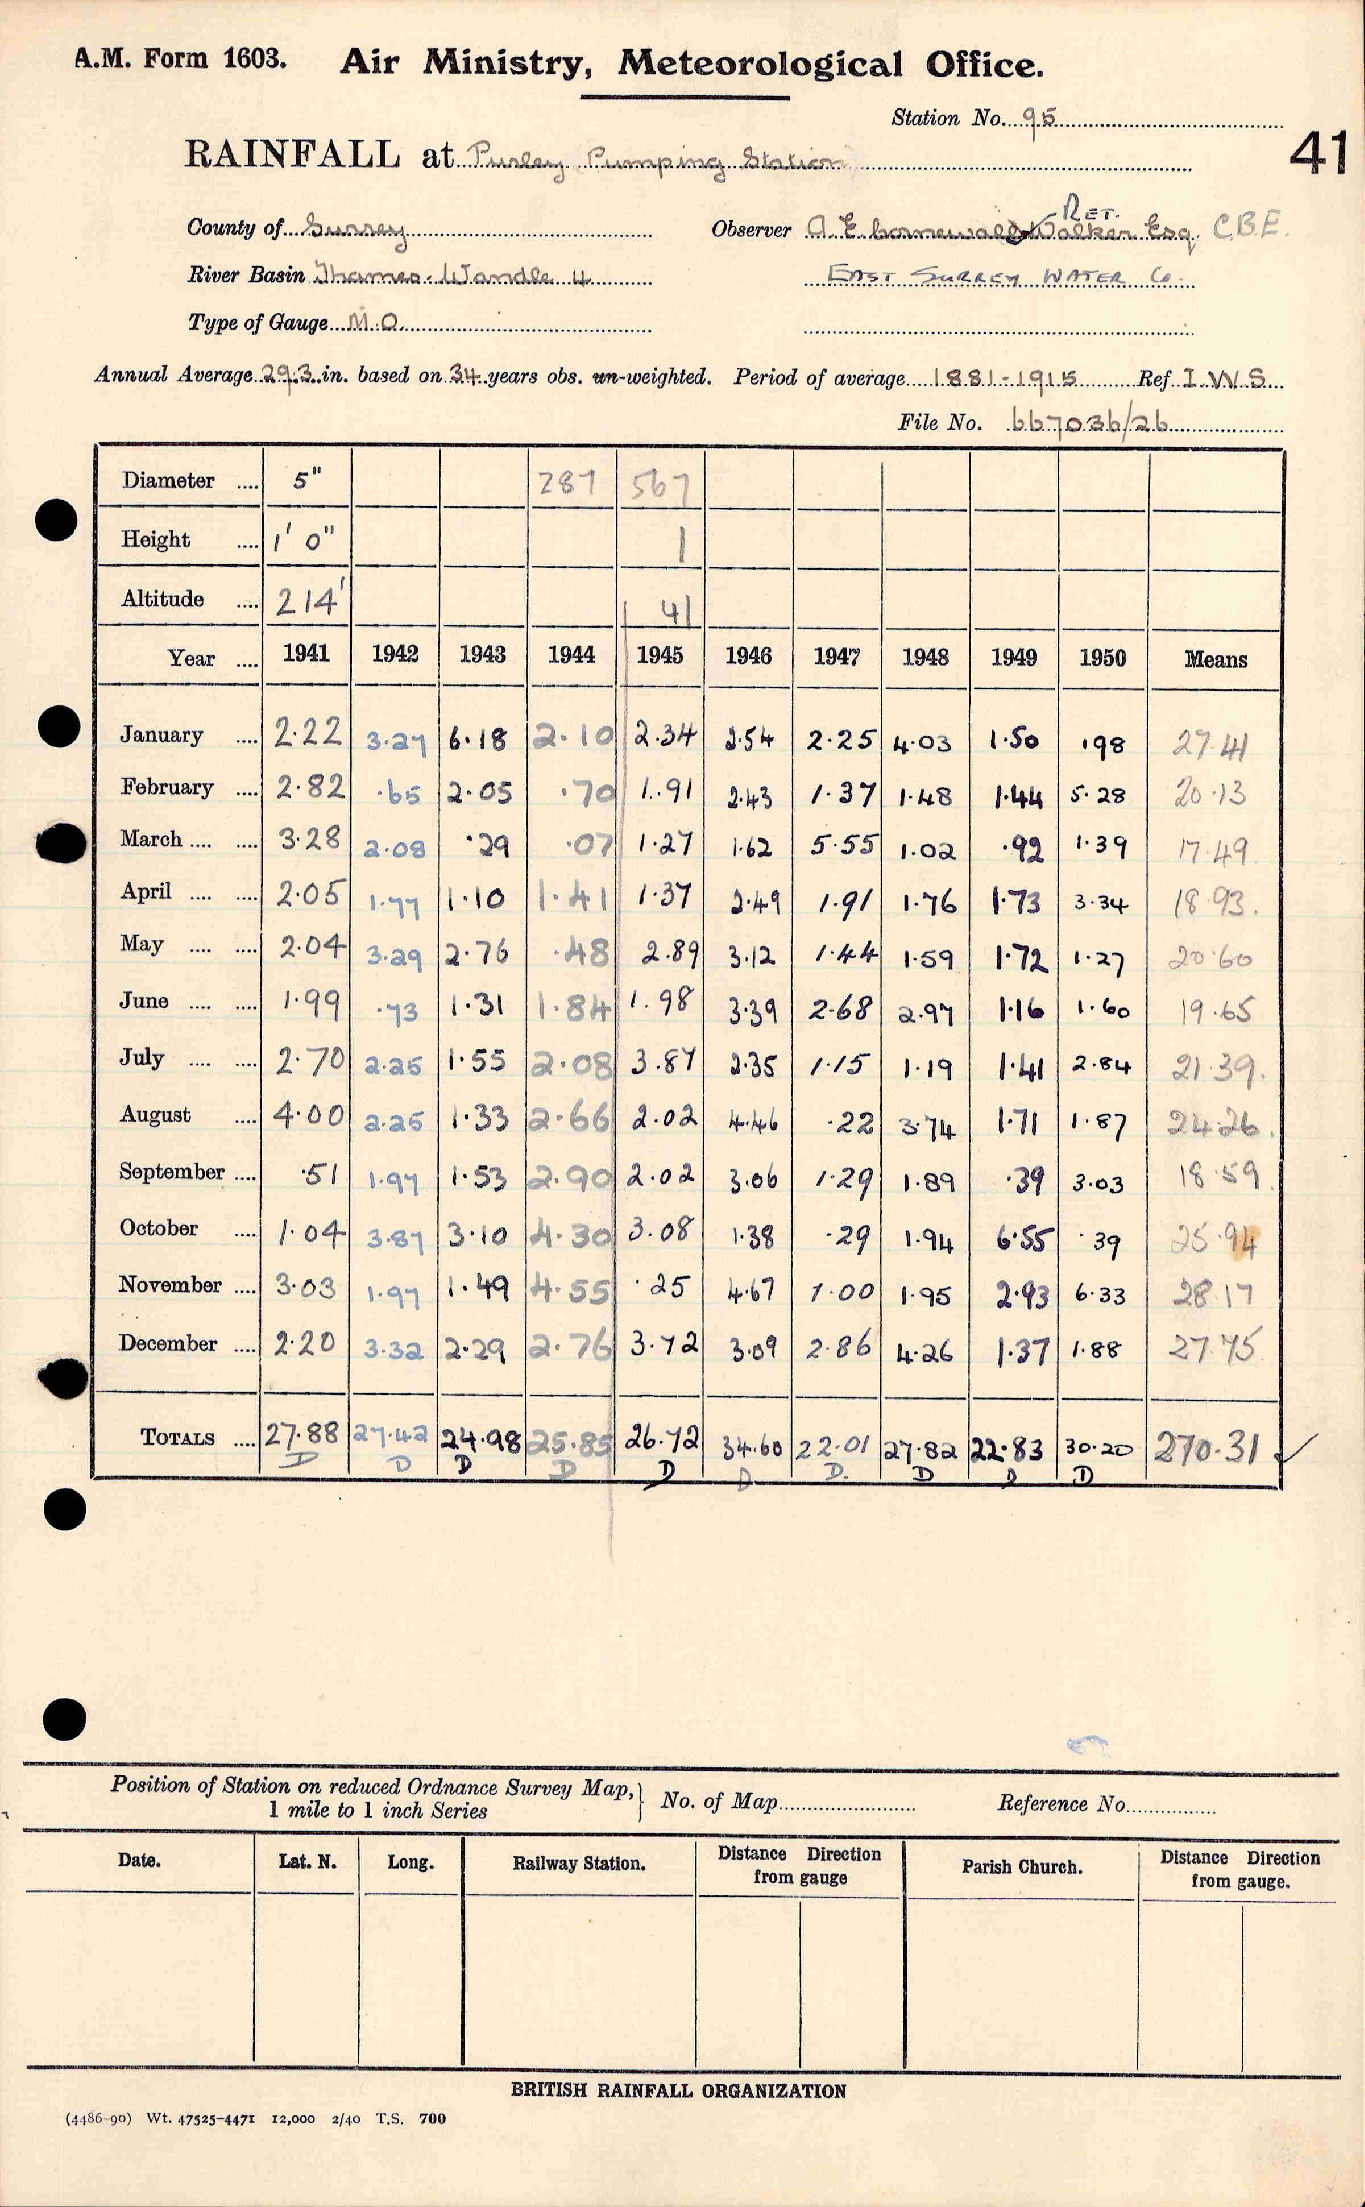 A.M. Form 1603. Air Ministry, Meteorological Office.
Station No. 95
41
RAINFALL at Purley Pumping Station
RET.
County of Surrey Observer A E Cornewall Walker Esq. C.B.E.
River Basin Thames. Wandle 4 EAST SURREY WATER Co.
Type of Gauge M.O.
Annual Average 29.3 in. based on 34 years obs. un-weighted. Period of average 1881-1915 Ref I.W.S.
File No. 667036/26
Diameter .... 5" 287 567
Height .... 1' 0" 1
Altitude .... 214' 41
Year .... 1941 1942 1943 1944 1945 1946 1947 1948 1949 1950 Means
January .... 2.22 3.27 6.18 2.10 2.34 2.54 2.25 4.03 1.50 .98 27.41
February .... 2.82 .65 2.05 .70 1.91 2.43 1.37 1.48 1.44 5.28 20.13
March .... .... 3.28 2.08 .29 .07 1.27 1.62 5.55 1.02 .92 1.39 17.49
April .... .... 2.05 1.77 1.10 1.41 1.37 2.49 1.91 1.76 1.73 3.34 18.93.
May .... .... 2.04 3.29 2.76 .48 2.89 3.12 1.44 1.59 1.72 1.27 20.60
June .... .... 1.99 .73 1.31 1.84 1.98 3.39 2.68 2.97 1.16 1.60 19.65
July .... .... 2.70 2.25 1.55 2.08 3.87 2.35 1.15 1.19 1.41 2.84 21.39.
August .... 4.00 2.25 1.33 2.66 2.02 4.46 .22 3.74 1.71 1.87 24.26.
September .... .51 1.97 1.53 2.90 2.02 3.06 1.29 1.89 .39 3.03 18.59
October .... 1.04 3.87 3.10 4.30 3.08 1.38 .29 1.94 6.55 .39 25.94
November .... 3.03 1.97 1.49 4.55 .25 4.67 1.00 1.95 2.93 6.33 28.17
December .... 2.20 3.32 2.29 2.76 3.72 3.09 2.86 4.26 1.37 1.88 27.75
TOTALS .... 27.88 27.42 24.98 25.85 26.72 34.60 22.01 27.82 22.83 30.20 270.31 ✓
D D D D D D D. D D D
Position of Station on reduced Ordnance Survey Map, } No. of Map Reference No.
1 mile to 1 inch Series
Date. Lat. N. Long. Railway Station. Distance Direction Parish Church. Distance Direction
from gauge from gauge.
BRITISH RAINFALL ORGANIZATION
(4486-90) Wt. 47525-4471 12,000 2/40 T.S. 700